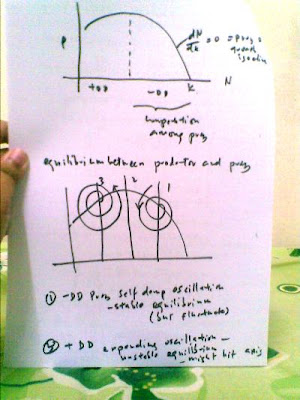 P
dN/dt = 0 = prey
growth isocline
+DD -DD K N
competition
among prey
equilibrium between predator and prey
3 2 1
① -DD prey self damp oscillation
-stable equilibrium
(but fluctuate)
② + DD expanding oscillation -
unstable equilibrium
- might hit axis